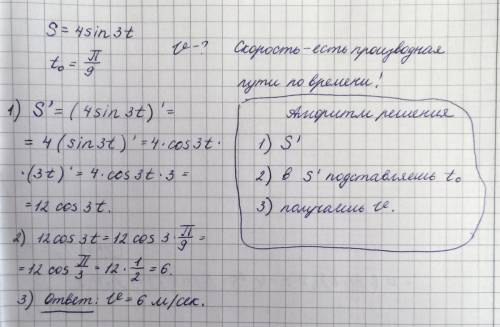 S = 4sin3t
t₀ = П/9
v - ?
Скорость - есть производная
пути по времени!
1) S' = (4sin3t)' =
= 4(sin3t)' = 4·cos3t·
·(3t)' = 4·cos3t·3 =
= 12cos3t.
2) 12cos3t = 12cos3·П/9 =
= 12cos П/3 = 12·1/2 = 6.
3) Ответ: v = 6 м/сек.
Алгоритм решения
1) S'
2) в S' подставляешь t₀
3) получаешь v.